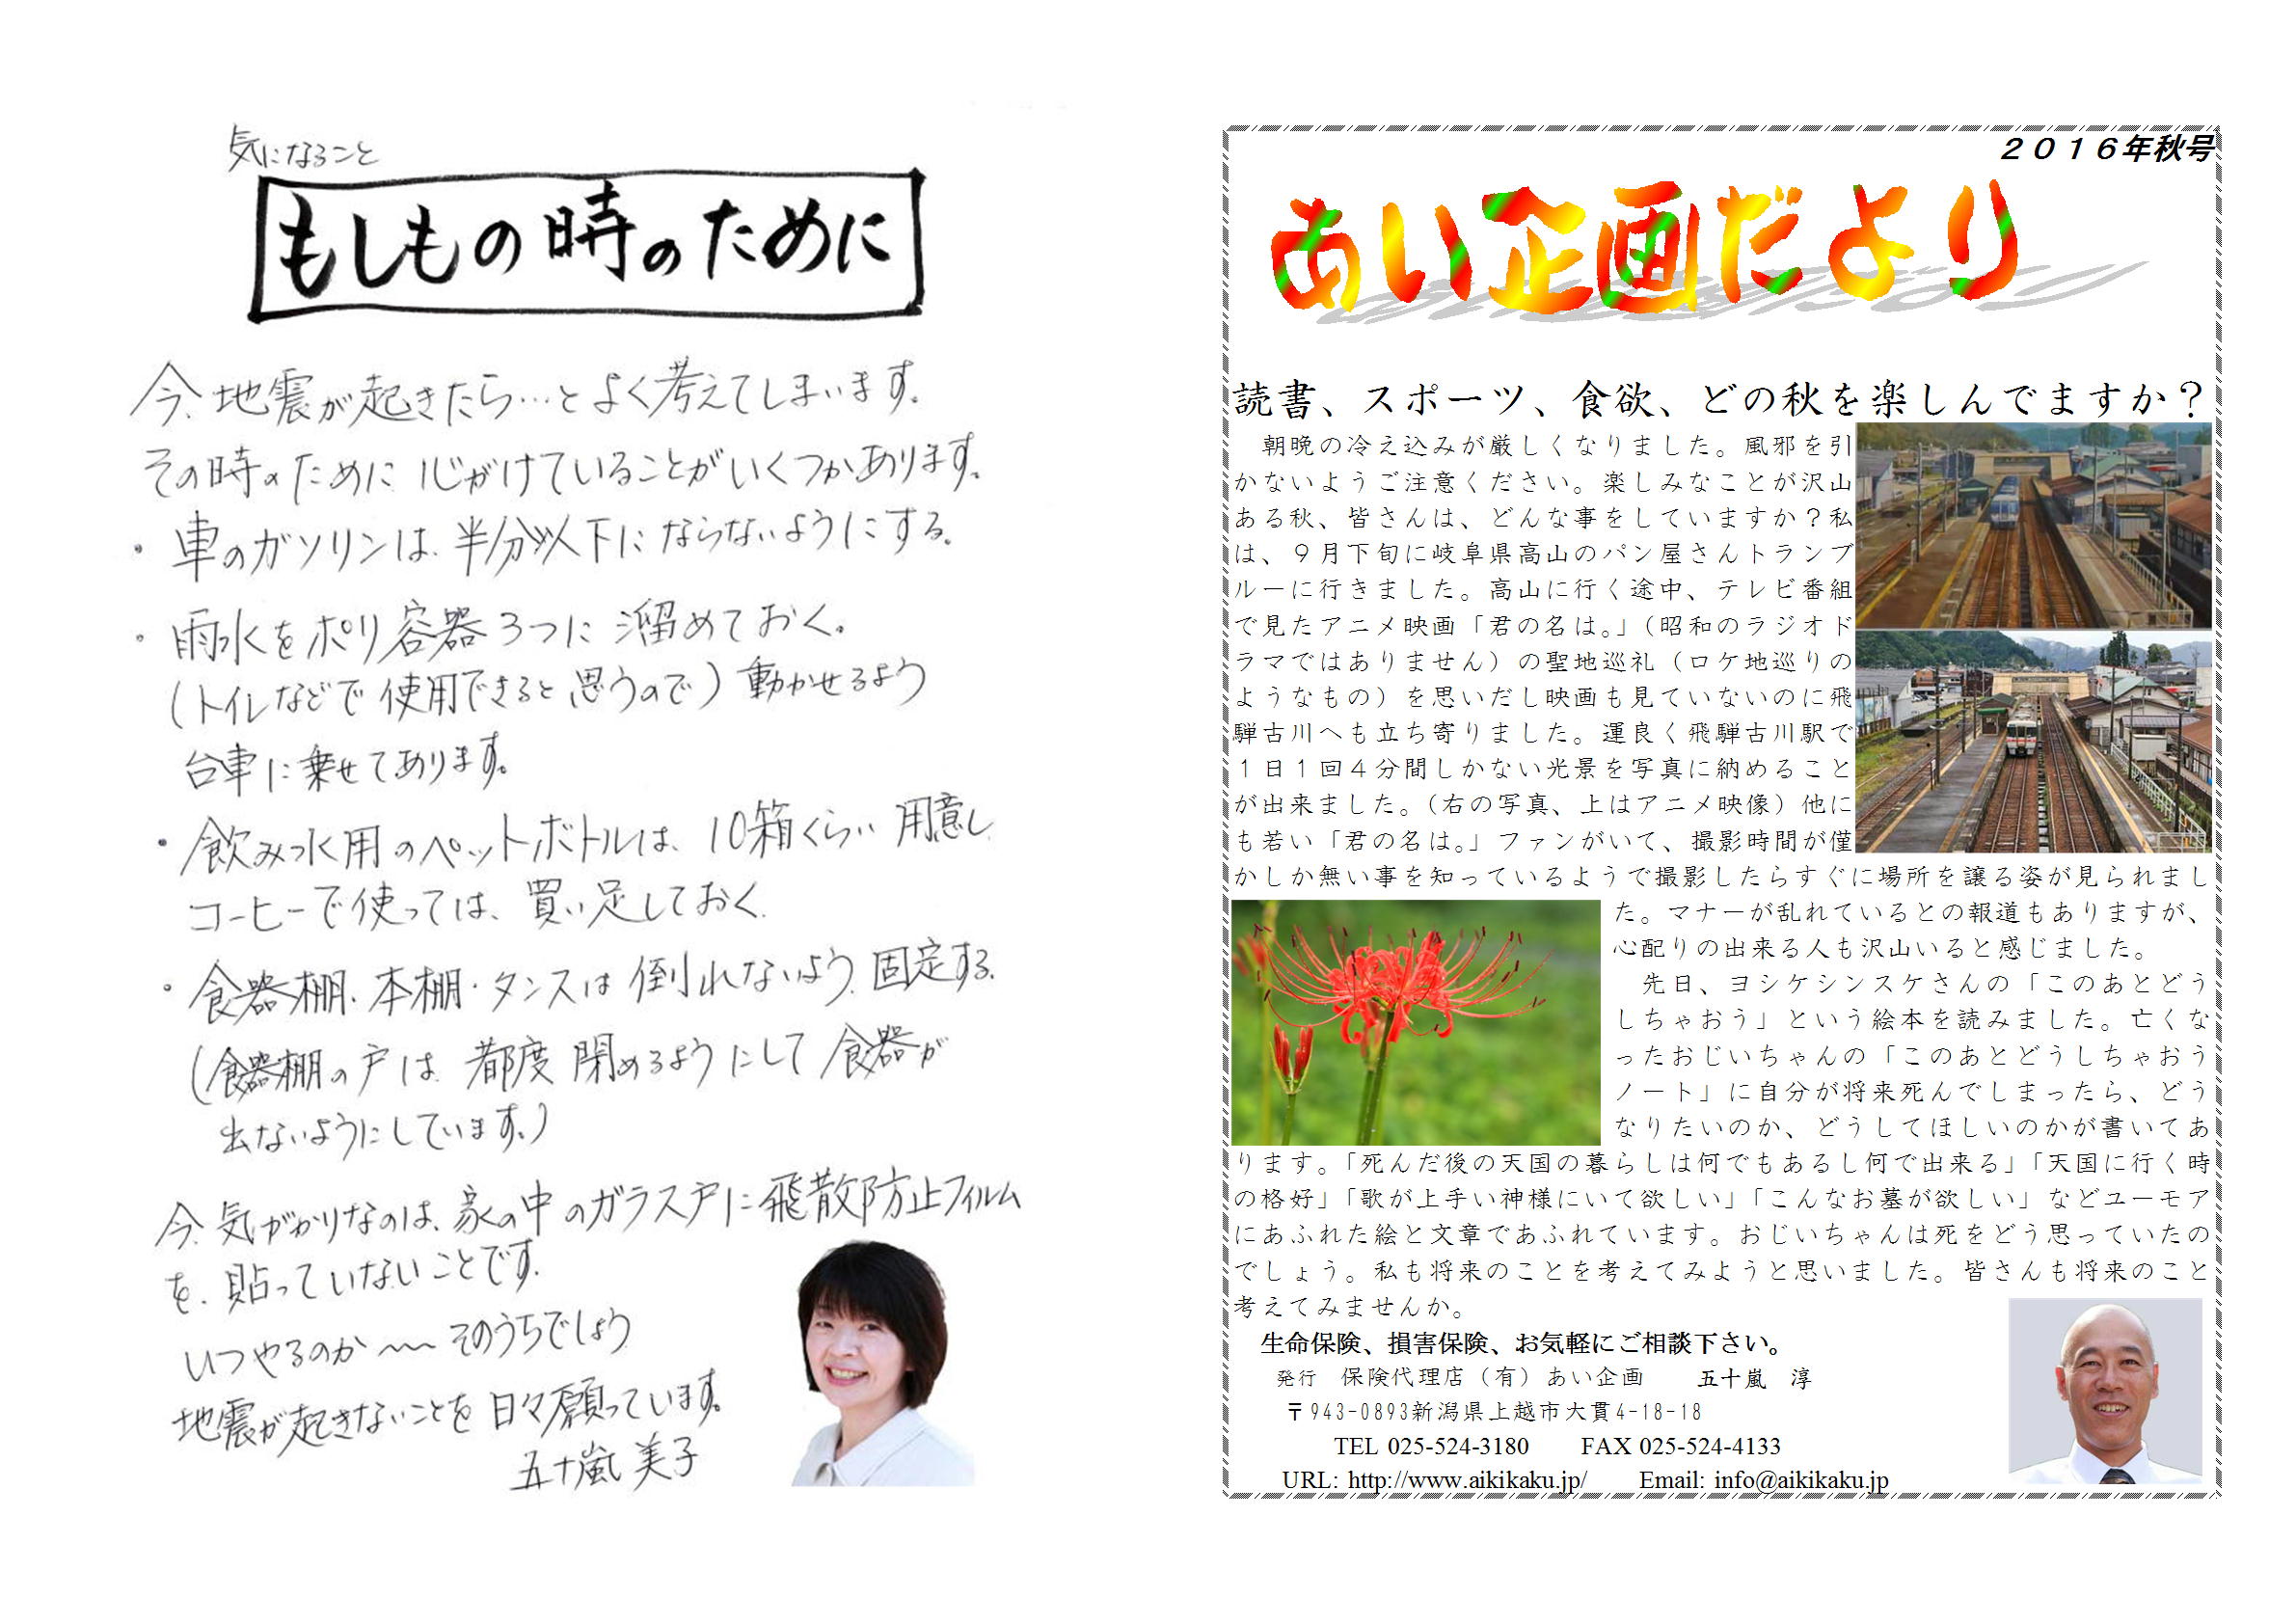 気になること
もしもの時のために
今、地震が起きたら…とよく考えてしまいます。
その時のために心がけていることがいくつかあります。
・車のガソリンは、半分以下にならないようにする。
・雨水をポリ容器3つに溜めておく。
(トイレなどで使用できると思うので)動かせるよう
台車に乗せてあります。
・飲み水用のペットボトルは、10箱くらい用意し
コーヒーで使っては、買い足しておく。
・食器棚・本棚・タンスは倒れないよう固定する。
(食器棚の戸は都度閉めるようにして食器が
出ないようにしています。)
今、気がかりなのは、家の中のガラス戸に飛散防止フィルム
を、貼っていないことです。
いつやるのか〜〜そのうちでしょう
地震が起きないことを日々願っています。
五十嵐 美子
２０１６年秋号
あい企画だより
読書、スポーツ、食欲、どの秋を楽しんでますか？
朝晩の冷え込みが厳しくなりました。風邪を引
かないようご注意ください。楽しみなことが沢山
ある秋、皆さんは、どんな事をしていますか？私
は、９月下旬に岐阜県高山のパン屋さんトランブ
ルーに行きました。高山に行く途中、テレビ番組
で見たアニメ映画「君の名は。」（昭和のラジオド
ラマではありません）の聖地巡礼（ロケ地巡りの
ようなもの）を思いだし映画も見ていないのに飛
騨古川へも立ち寄りました。運良く飛騨古川駅で
１日１回４分間しかない光景を写真に納めること
が出来ました。（右の写真、上はアニメ映像）他に
も若い「君の名は。」ファンがいて、撮影時間が僅
かしか無い事を知っているようで撮影したらすぐに場所を譲る姿が見られまし
た。マナーが乱れているとの報道もありますが、
心配りの出来る人も沢山いると感じました。
先日、ヨシケシンスケさんの「このあとどう
しちゃおう」という絵本を読みました。亡くな
ったおじいちゃんの「このあとどうしちゃおう
ノート」に自分が将来死んでしまったら、どう
なりたいのか、どうしてほしいのかが書いてあ
ります。「死んだ後の天国の暮らしは何でもあるし何で出来る」「天国に行く時
の格好」「歌が上手い神様にいて欲しい」「こんなお墓が欲しい」などユーモア
にあふれた絵と文章であふれています。おじいちゃんは死をどう思っていたの
でしょう。私も将来のことを考えてみようと思いました。皆さんも将来のこと
考えてみませんか。
生命保険、損害保険、お気軽にご相談下さい。
発行　保険代理店（有）あい企画　　五十嵐　淳
〒943-0893新潟県上越市大貫4-18-18
TEL 025-524-3180　FAX 025-524-4133
URL: http://www.aikikaku.jp/　Email: info@aikikaku.jp